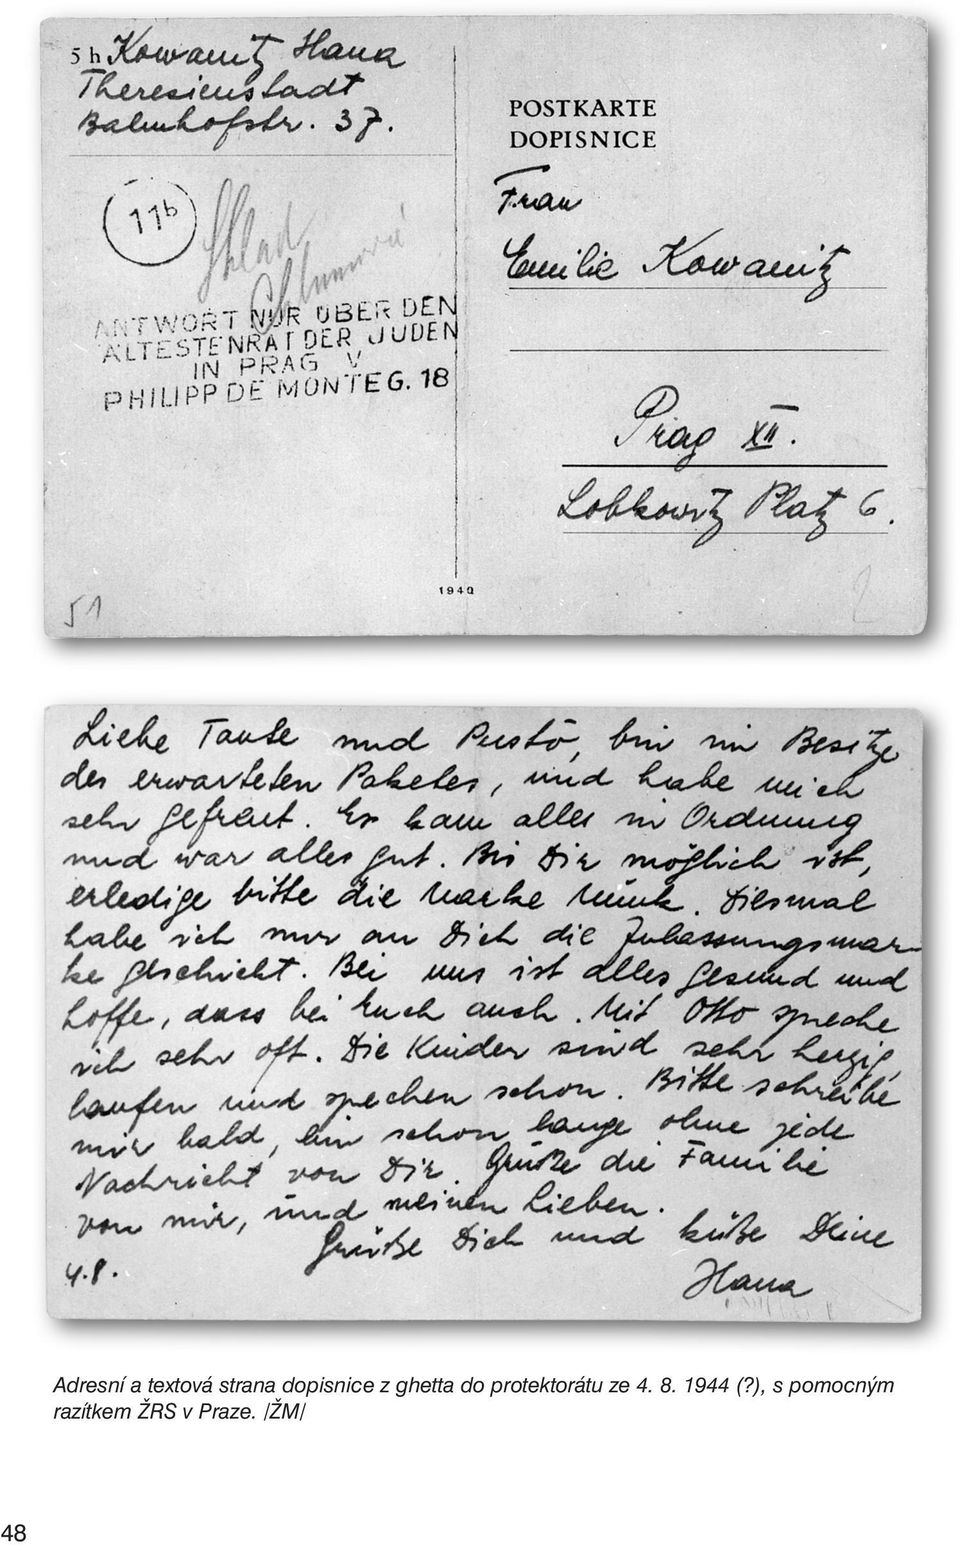 5 h Kowanitz Hana
Theresienstadt
Bahnhofstr. 37.
11b
Sklad
ANTWORT NUR ÜBER DEN
ÄLTESTENRAT DER JUDEN
IN PRAG V
PHILIPP DE MONTE G. 18
51
POSTKARTE
DOPISNICE
Frau
Emilie Kowanitz
Prag XII.
Lobkowitz Platz 6.
1940
2
Liebe Tante und Pusto, bin im Besitze
des erwarteten Paketes, und habe mich
sehr gefreut. Es kam alles in Ordnung
und war alles gut. Bis Dir möglich ist,
erledige bitte die Marke Munk. Diesmal
habe ich nur an Dich die Zulassungsmar-
ke geschickt. Bei uns ist alles gesund und
hoffe, dass bei Euch auch. Mit Otto spreche
ich sehr oft. Die Kinder sind sehr herzig,
laufen und sprechen schon. Bitte schreibe
mir bald, bin schon lange ohne jede
Nachricht von Dir. Grüße die Familie
von mir, und meinen Lieben.
Grüße Dich und küße Deine
4.8. Hana
Adresní a textová strana dopisnice z ghetta do protektorátu ze 4. 8. 1944 (?), s pomocným
razítkem ŽRS v Praze. /ŽM/
48